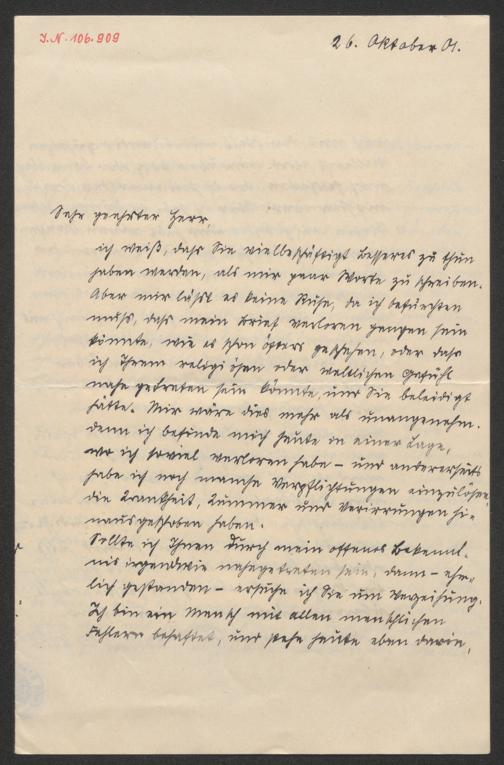 I.N. 106.909
26. Oktober 01.
Sehr geehrter Herr,
ich weiß, daß Sie vielbeschäftigt Besseres zu thun
haben werden, als mir paar Worte zu schreiben.
Aber mir läßt es keine Ruhe, da ich befürchten
muß, daß mein Brief verloren gegangen sein
könnte, wie es schon öfters geschehen, oder daß
ich Ihrem religiösen oder weltlichen Gefühl
nahe getreten sein könnte, und Sie beleidigt
hätte. Mir wäre dies mehr als unangenehm.
denn ich befinde mich heute in einer Lage,
wo ich soviel verloren habe – und andererseits
habe ich noch manche Verpflichtungen einzulösen
die Krankheit, Kummer und Verirrungen hi-
nausgeschoben haben.
Sollte ich Ihnen durch mein offenes Bekennt-
nis irgendwie nahegetreten sein, dann – ehr-
lich gestanden – ersuche ich Sie um Verzeihung.
Ich bin ein Mensch mit allen menschlichen
Fehlern behaftet, und stehe heute eben darin,